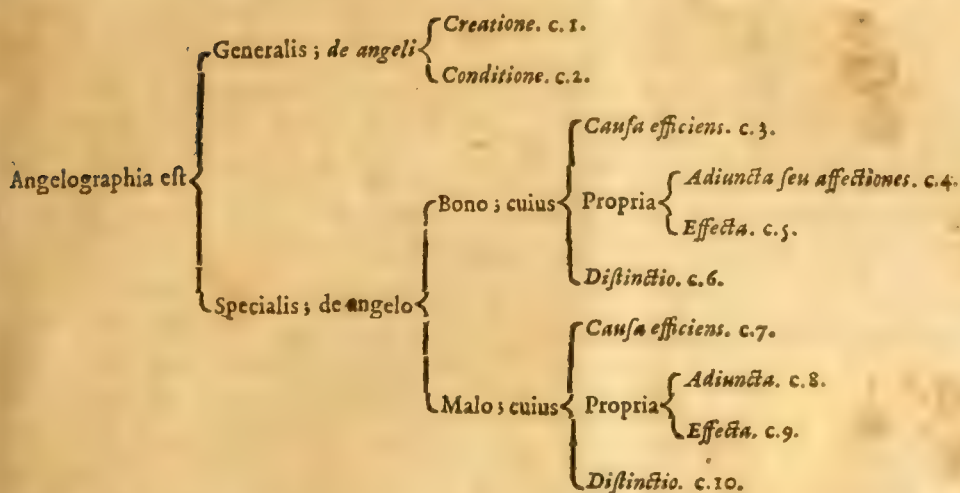 Generalis ; de angeli
Creatione. c. 1.
Conditione. c. 2.
Angelographia est
Specialis ; de angelo
Bono ; cuius
Cauſa efficiens. c. 3.
Propria
Adiuncta ſeu affectiones. c. 4.
Effecta. c. 5.
Diſtinctio. c. 6.
Malo ; cuius
Cauſa efficiens. c. 7.
Propria
Adiuncta. c. 8.
Effecta. c. 9.
Diſtinctio. c. 10.